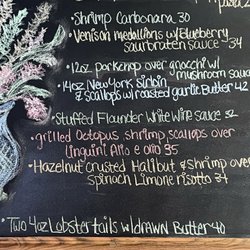 • Shrimp Carbonara 30
• Venison medallions w/Blueberry
saurbraten sauce 34
• 12oz porkchop over gnocchi w/
mushroom sauce
• 14oz New York Sirloin
& scallops w/roasted garlic Butter 42
• Stuffed Flounder White Wine sauce 32
• grilled Octopus, shrimp, scallops over
linguini Alio e olio 35
• Hazelnut crusted Halibut & shrimp over
Spinach Limone risotto 34
• Two 4oz Lobster tails w/DRAWN Butter 40